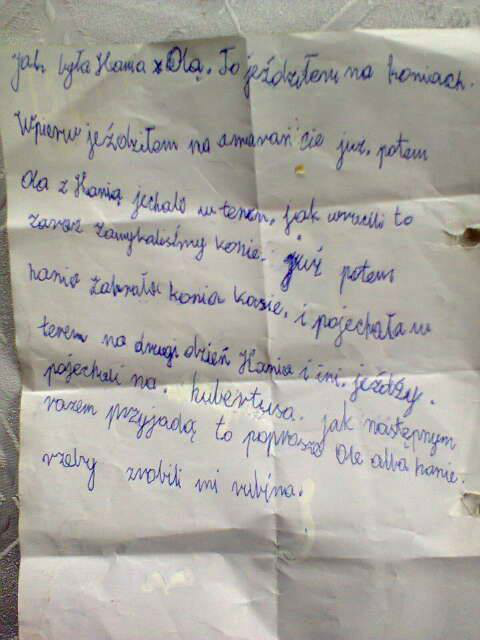 jak była Hania z Olą. To jeździłem na koniach.
Wpierw jeździłem na amarancie już, potem
Ola z Hanią jechali w teren, jak wrucili to
zaraz zamykaliśmy konie. już potem
hania zabrała konia kasie, i pojechała w
teren na drugi dzień Hania i ini, jeźdźy.
pojechali na. hubertusa. jak następnym
razem przyjadą to poproszę Ole albo hanie.
rzeby zrobili mi rubina.